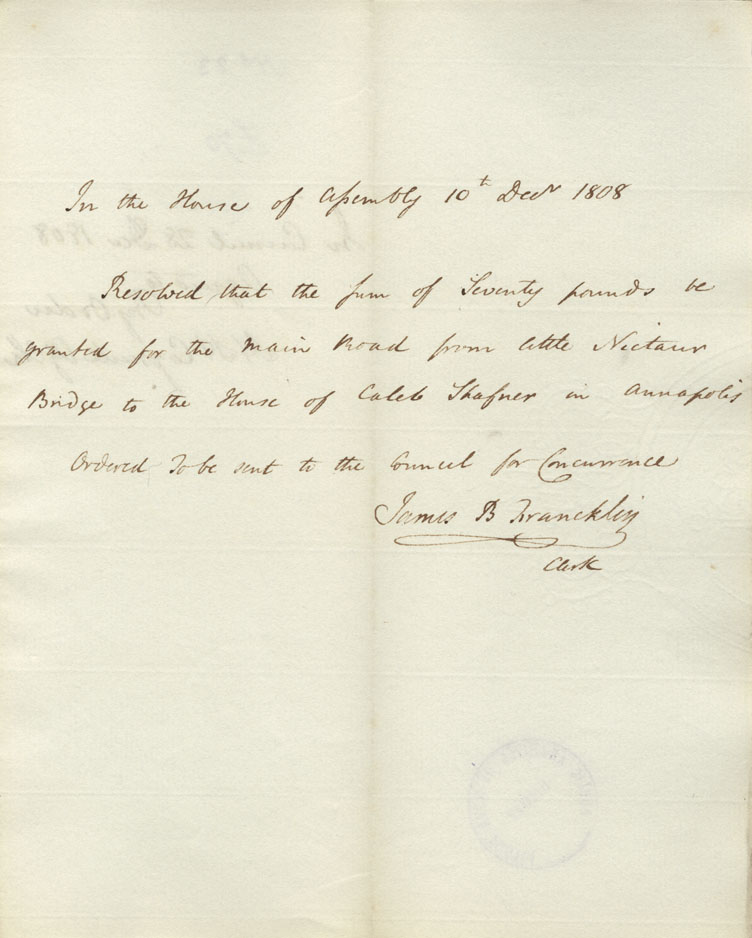 In the House of Assembly 10th Decr 1808
Resolved that the sum of Seventy pounds be
granted for the main Road from little Nictaux
Bridge to the House of Caleb Shafner in Annapolis
Ordered To be sent to the Council for Concurrence
James B Francklin
Clerk